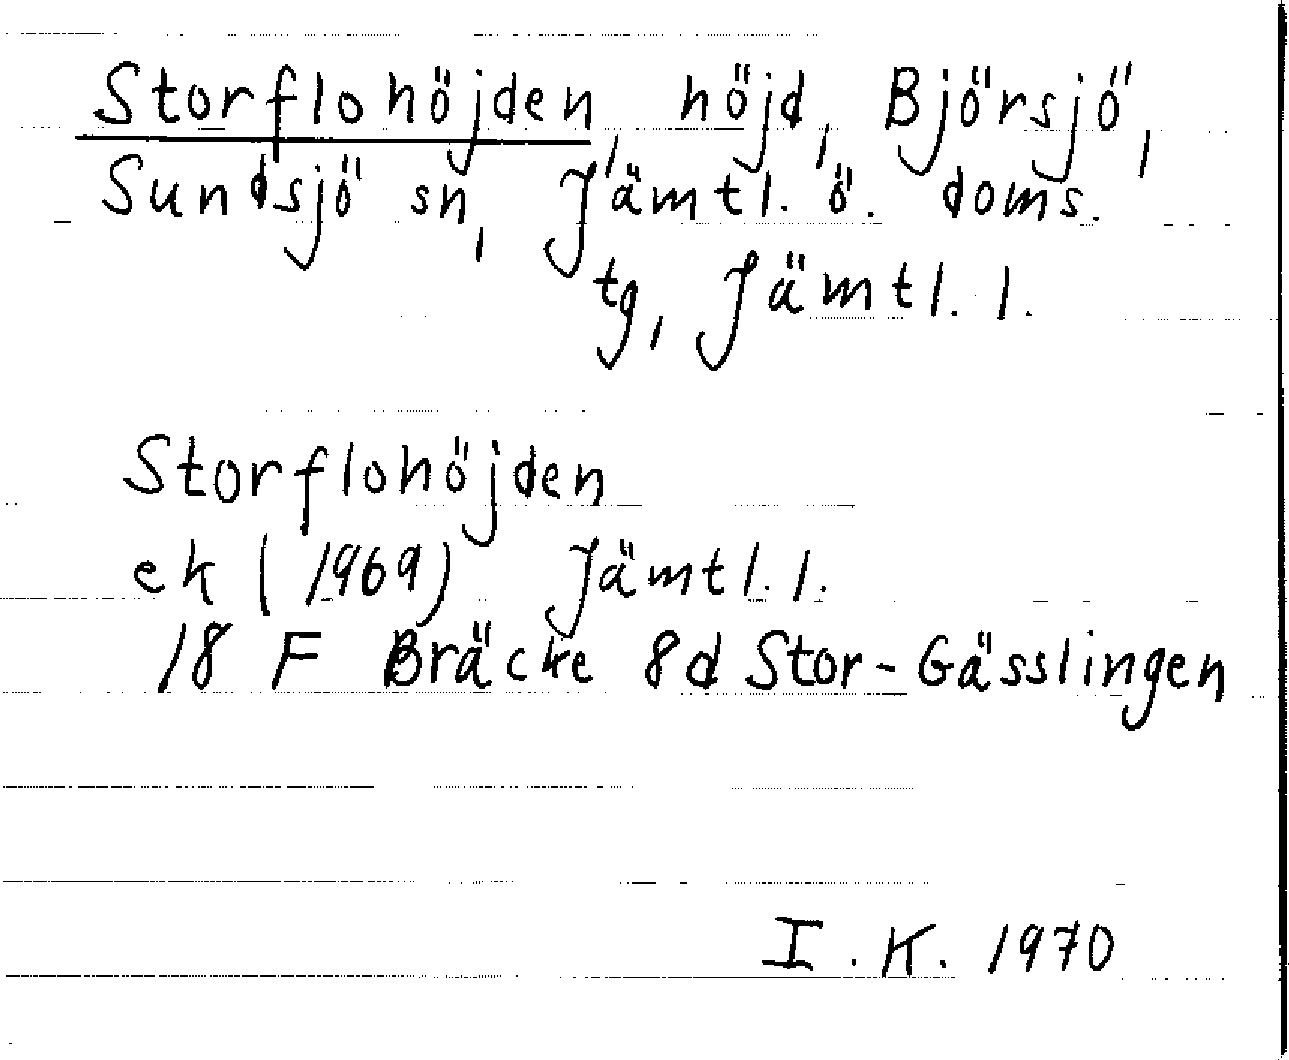 Storflohöjden, höjd, Björsjö,
Sundsjö sn, Jämtl. ö. doms.
tg, Jämtl. l.
Storflohöjden
ek (1969) Jämtl. l.
18 F Bräcke 8d Stor-Gässlingen
I. K. 1970